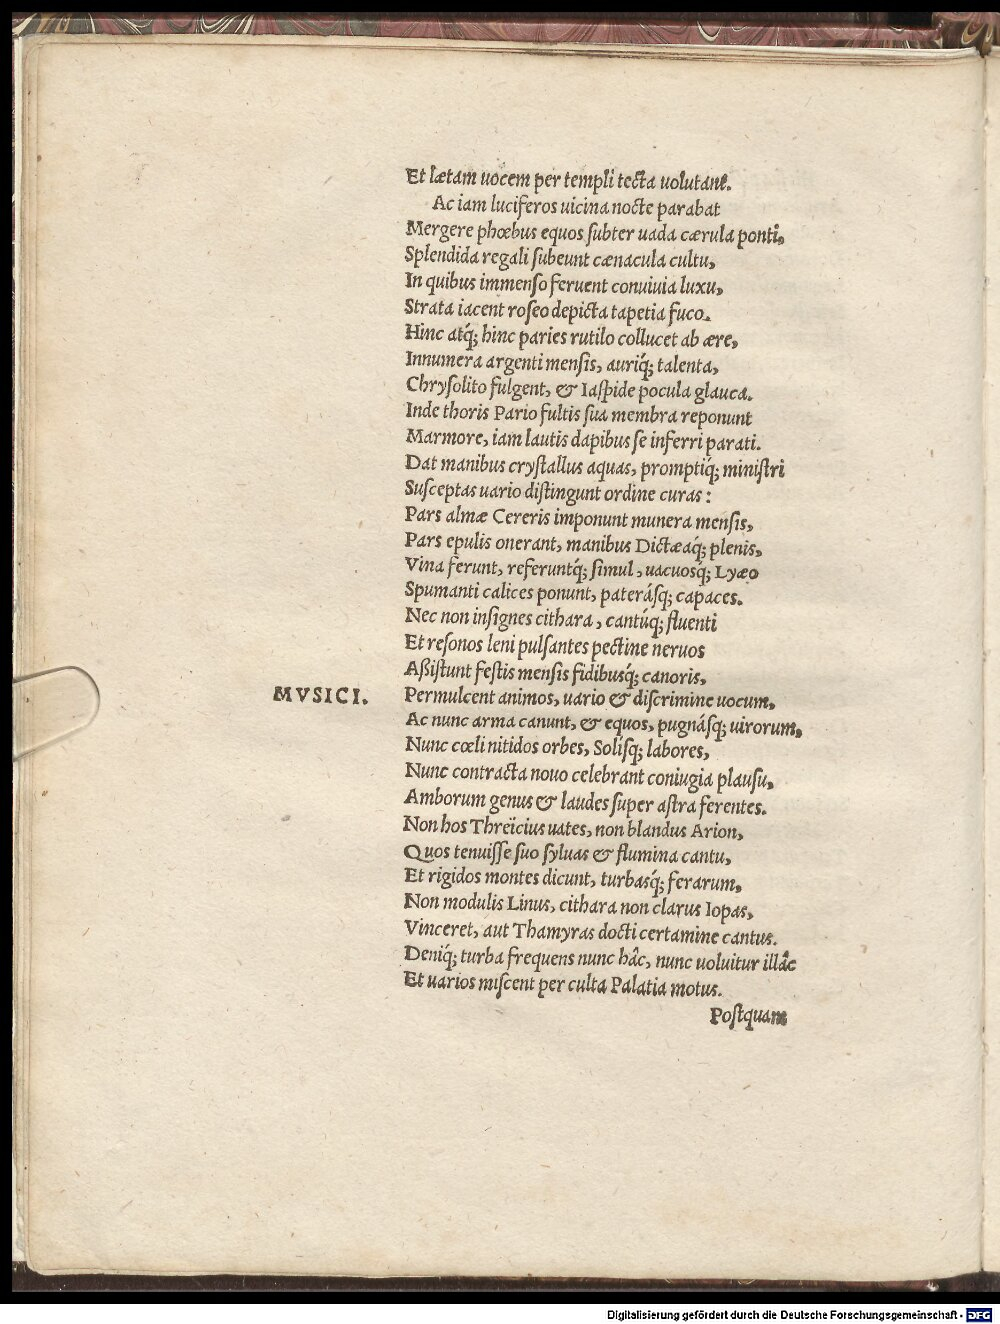 Et lætam uocem per templi tecta uolutant.
Ac iam luciferos uicina nocte parabat
Mergere phœbus equos ſubter uada cærula ponti,
Splendida regali ſubeunt cænacula cultu,
In quibus immenſo feruent conuiuia luxu,
Strata iacent roſeo depicta tapetia fuco.
Hinc atq́; hinc paries rutilo collucet ab ære,
Innumera argenti menſis, auriq́; talenta,
Chryſolito fulgent, & Iaſpide pocula glauca.
Inde thoris Pario fultis ſua membra reponunt
Marmore, iam lautis dapibus ſe inferri parati.
Dat manibus cryſtallus aquas, promptiq́; miniſtri
Suſceptas uario diſtingunt ordine curas:
Pars almæ Cereris imponunt munera menſis,
Pars epulis onerant, manibus Dictæaq́; plenis,
Vina ferunt, referuntq́; ſimul, uacuosq́; Lyæo
Spumanti calices ponunt, paterásq́; capaces.
Nec non inſignes cithara, cantúq́; fluenti
Et reſonos leni pulſantes pectine neruos
Aßiſtunt feſtis menſis fidibusq́; canoris,
MVSICI. Permulcent animos, uario & diſcrimine uocum,
Ac nunc arma canunt, & equos, pugnásq́; uirorum,
Nunc cœli nitidos orbes, Solísq́; labores,
Nunc contracta nouo celebrant coniugia plauſu,
Amborum genus & laudes ſuper aſtra ferentes.
Non hos Threïcius uates, non blandus Arion,
Quos tenuiſſe ſuo ſyluas & flumina cantu,
Et rigidos montes dicunt, turbasq́; ferarum,
Non modulis Linus, cithara non clarus Iopas,
Vinceret, aut Thamyras docti certamine cantus.
Deniq́; turba frequens nunc hâc, nunc uoluitur illâc
Et uarios miſcent per culta Palatia motus.
Poſtquam
Digitalisierung gefördert durch die Deutsche Forschungsgemeinschaft - DFG